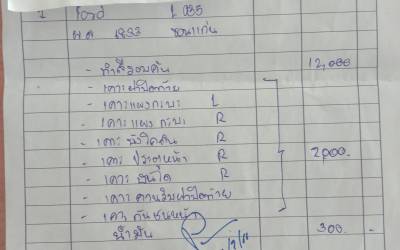 1 ฟอร์ด 1 035
ผต 1833 ขอนแก่น
- ทำสีรอบคัน 12,000
- เคาะฝาปิดท้าย
- เคาะแผงกะบะ L
- เคาะแผงกะบะ R
- เคาะ R
- เคาะ ประตูหน้า R 2000.
- เคาะ บันได R
- เคาะ คานในฝาปิดท้าย
- เคาะ กันชนหน้า
น้ำมัน 300.